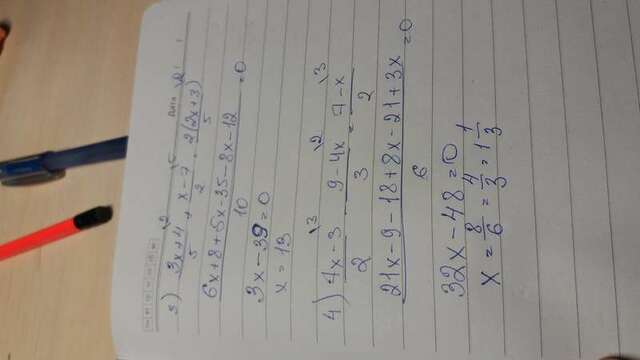 Дата
3) (3x+4)/5 \2 + (x-7)/2 \5 = 2(2x+3)/5 \2
(6x+8+5x-35-8x-12)/10 = 0
3x-39=0
x = 13
4) (4x-3)/2 \3 - (9-4x)/3 \2 = (7-x)/2 \3
(21x-9-18+8x-21+3x)/6 = 0
32x-48=0
x = 8/6 = 4/3 = 1 1/3